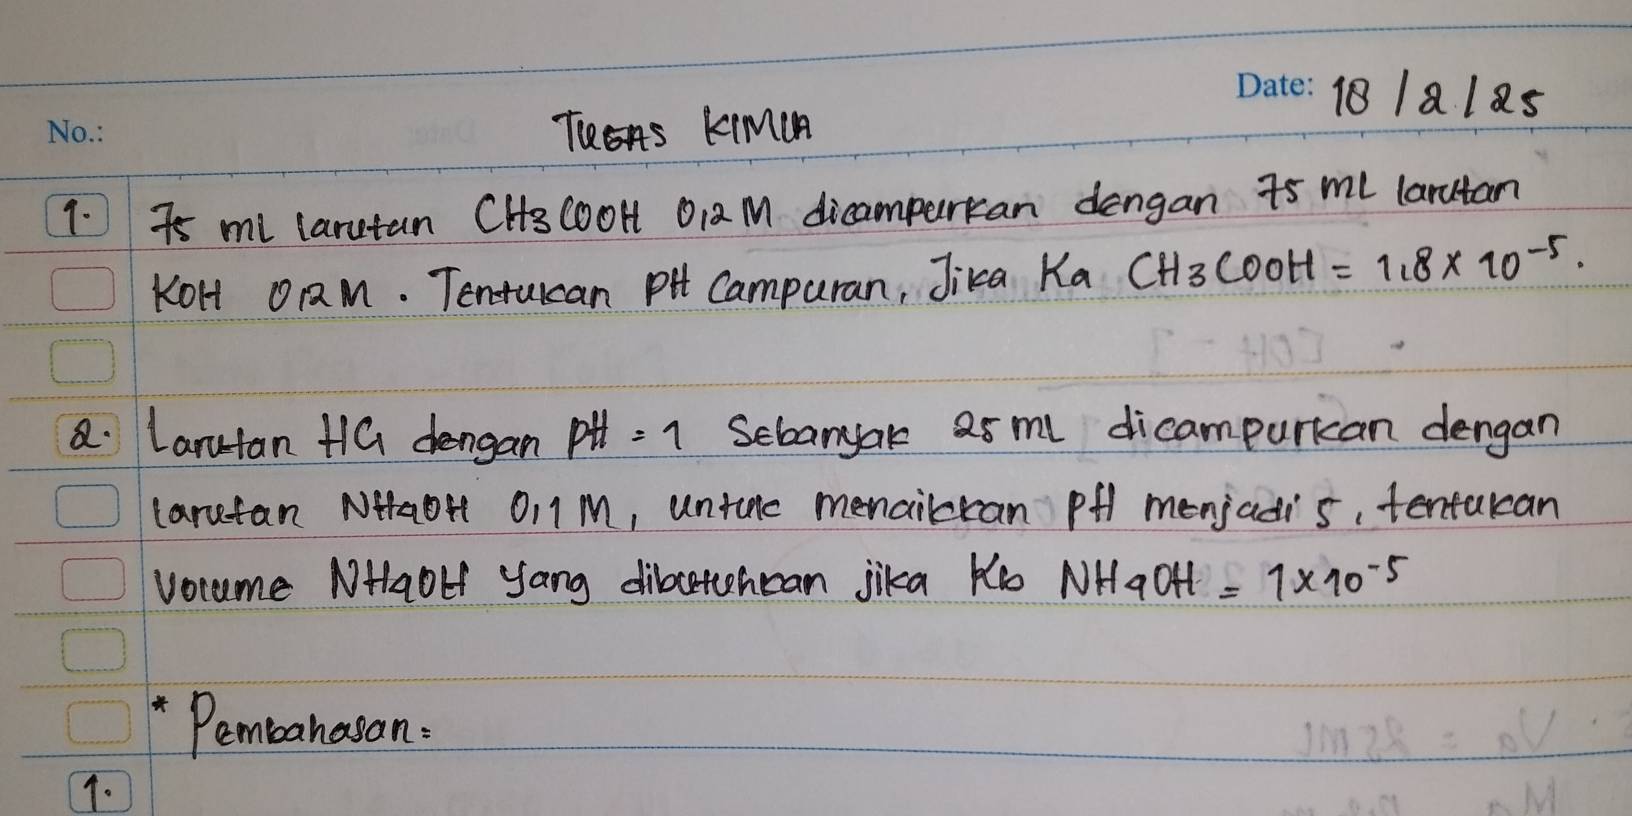 No.:
TUGAS KIMIA
Date: 18/2/25
1. 75 ml larutan CH3COOH 0,2 M dicampurkan dengan 75 mL larutan
KOH 0,2 M. Tentukan PH Campuran, Jika Ka CH3COOH = 1,8 x 10⁻⁵.
2. Larutan HCl dengan pH = 1 Sebanyak 25 mL dicampurkan dengan
larutan NH4OH 0,1 M, untuk menaikkan PH menjadi 5, tentukan
Volume NH4OH yang dibutuhkan jika Kb NH4OH = 1x10⁻⁵
* Pembahasan:
1.